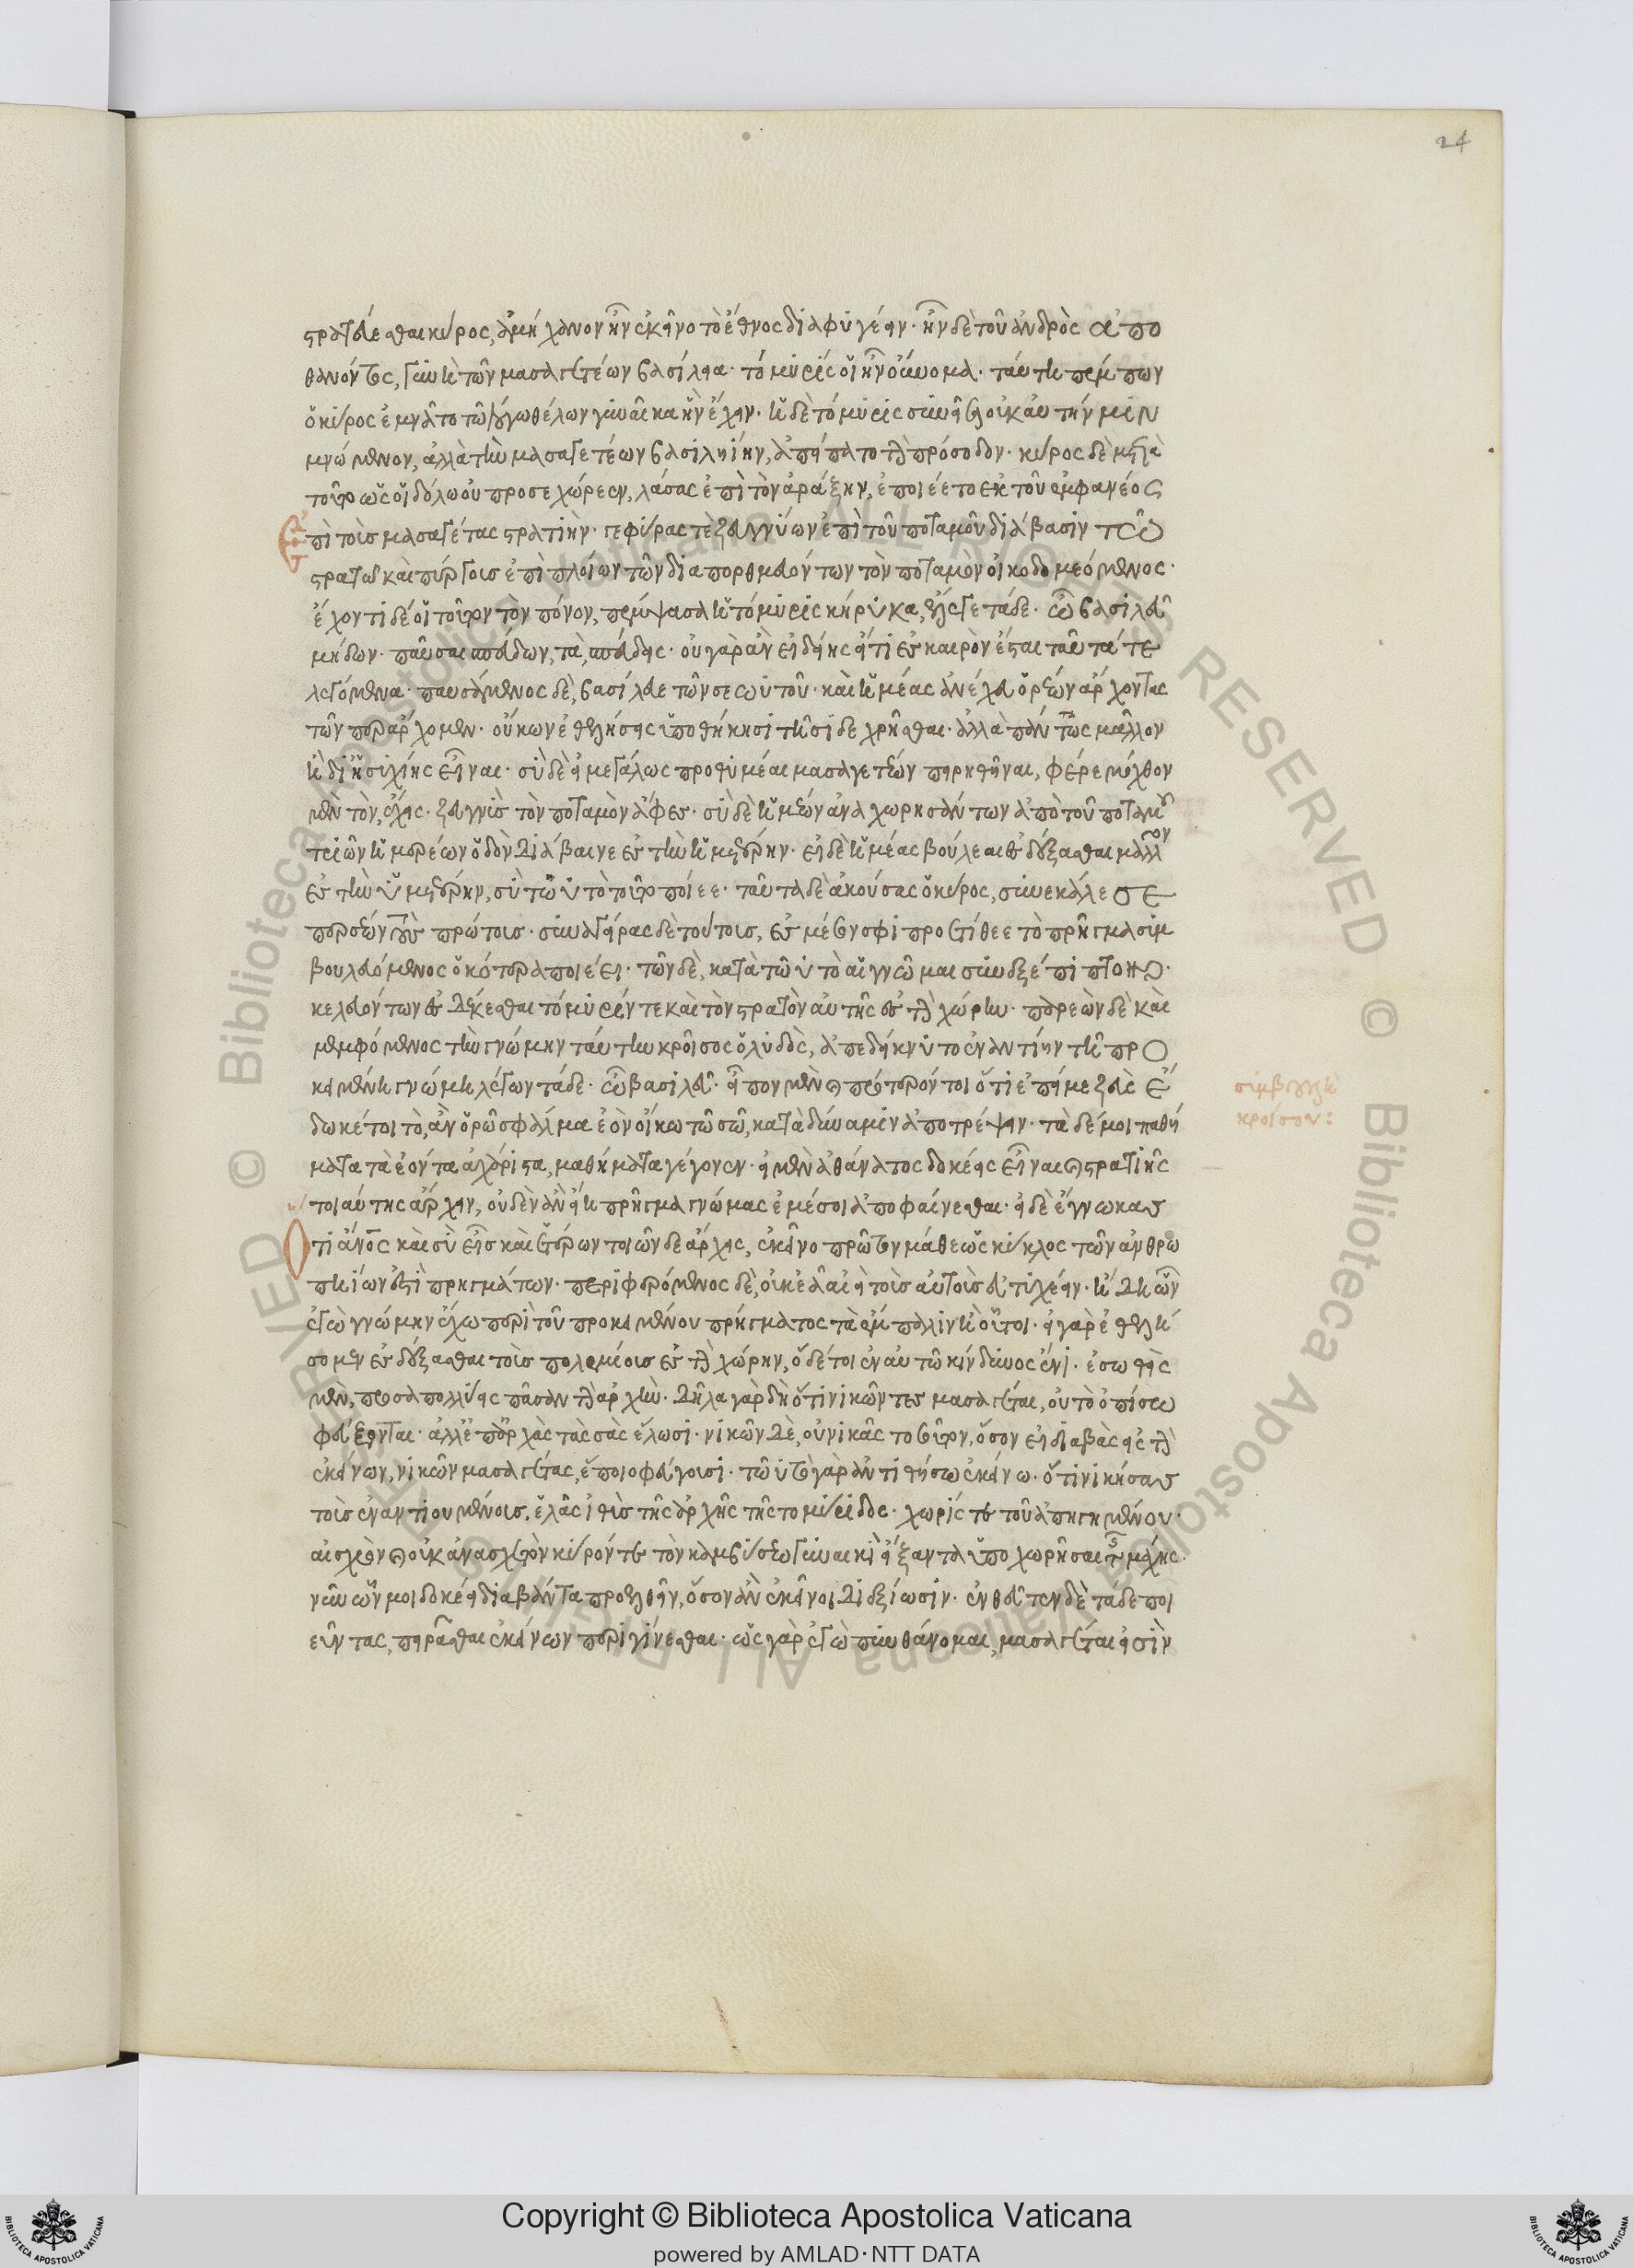 24
στρατεύεσθαι κύρος, ἀμήχανον ἦν ἐκεῖνο τὸ ἔθνος διαφυγέειν· ἦν δὲ τοῦ ἀνδρὸς ἀπο
θανόντος, γυνὴ τῶν μασαγετέων βασίλεια· τόμυρίς οἱ ἦν οὔνομα· ταύτη πέμπων
ὁ κύρος ἐμνᾶτο τῶ λόγω θέλων γυναῖκα ἣν ἔχειν· ἡ δὲ τόμυρις συνιεῖσα οὐκ αὐτήν μιν
μνώμενον, ἀλλὰ τὴν μασαγετέων βασιληίην, ἀπείπατο τὴν πρόσοδον· κύρος δὲ μετὰ
τοῦτο ὥς οἱ δόλω οὐ προσεχώρεεν, ἐλάσας ἐπὶ τὸν ἀράξην, ἐποιέετο ἐκ τοῦ ἐμφανέος
ἐπὶ τοὺς μασαγέτας στρατιὴν· γεφύρας τὲ ζευγνύων ἐπὶ τοῦ ποταμοῦ διάβασιν τῶ
στρατῶ καὶ πύργους ἐπὶ πλοίων τῶν διαπορθμευόντων τὸν ποταμὸν οἰκοδομεόμενος·
ἔχοντι δέ οἱ τοῦτον τὸν πόνον, πέμψασα ἡ τόμυρις κήρυκα, ἔλεγε τάδε· ὦ βασιλεῦ
μήδων· παῦσαι σπεύδων, τὰ σπεύδεις· οὐ γὰρ ἂν εἰδείης εἴ τι ἐς καιρὸν ἔσται ταῦτά τε
λεγόμενα· παυσάμενος δὲ, βασίλευε τῶν σεωυτοῦ· καὶ ἡμέας ἀνέχευ ὁρέων ἄρχοντας
τῶν περ ἄρχομεν· οὔκων ἐθελήσεις ὑποθήκησι τῆσίδε χρῆσθαι· ἀλλὰ πάντως μᾶλλον
ἢ δι' ἡσυχίης εἶναι· σὺ δὲ εἰ μεγάλως προθυμέαι μασαγετέων πειρηθῆναι, φέρε μόχθον
μὲν τὸν ἔχεις· ζευγνὺς τὸν ποταμὸν ἄφες· σὺ δὲ ἡμέων ἀναχωρησάντων ἀπὸ τοῦ ποταμοῦ
τριῶν ἡμερέων ὁδὸν διάβαινε ἐς τὴν ἡμετέρην· εἰ δὲ ἡμέας βούλεαι ἐσδέξασθαι μᾶλλον
ἐς τὴν ὑμετέρην, σὺ τὠυτὸ τοῦτο ποίεε· ταῦτα δὲ ἀκούσας ὁ κύρος, συνεκάλεσε
περσέων τοὺς πρώτους· συναγείρας δὲ τούτους, ἐς μέσον σφι προετίθεε τὸ πρῆγμα συμ
βουλευόμενος ὁκότερα ποιέει· τῶν δὲ, κατὰ τὠυτὸ αἱ γνῶμαι συνεξέπιπτον·
κελευόντων ἐσδέκεσθαι τόμυρίν τε καὶ τὸν στρατὸν αὐτῆς ἐς τὴν χώρην· παρεὼν δὲ καὶ
μεμφόμενος τὴν γνώμην ταύτην κροῖσος ὁ λυδὸς, ἀπεδείκνυτο ἐναντίην τῆ προ
κειμένη γνώμη λέγων τάδε· ὦ βασιλεῦ· εἶπον μὲν καὶ πρότερόν τοι ὅτι ἐπεί με ζεὺς ἔ
δωκέ τοι τὸ, ἂν ὁρῶ σφάλμα ἐὸν οἴκω τῶ σῶ, κατὰ δύναμιν ἀποτρέψειν· τὰ δέ μοι παθή
ματα τὰ ἐόντα ἀχάριστα, μαθήματα γέγονεν· εἰ μὲν ἀθάνατος δοκέεις εἶναι καὶ στρατιῆς
τοιαύτης ἄρχειν, οὐδὲν ἂν εἴη πρῆγμα γνώμας ἐμέ σοι ἀποφαίνεσθαι· εἰ δὲ ἔγνωκας
ὅτι ἄνος καὶ σὺ εἶς καὶ ἑτέρων τοιῶνδε ἄρχεις, ἐκεῖνο πρῶτον μάθε ὡς κύκλος τῶν ἀνθρω
πηίων ἐστὶ πρηγμάτων· περιφερόμενος δὲ, οὐκ ἐᾶ αἰεὶ τοὺς αὐτοὺς εὐτυχέειν· ἤδη ὦν
ἐγὼ γνώμην ἔχω περὶ τοῦ προκειμένου πρήγματος τὰ ἔμπαλιν ἢ οὗτοι· εἰ γὰρ ἐθελή
σομεν ἐσδέξασθαι τοὺς πολεμίους ἐς τὴν χώρην, ὅδε τοι ἐν αὐτῶ κίνδυνος ἔνι· ἑσσωθεὶς
μὲν, προσαπολλύεις πᾶσαν τὴν ἀρχὴν· δῆλα γὰρ δὴ ὅτι νικῶντες μασαγέται, οὐ τὸ ὀπίσω
φεύξονται· ἀλλ' ἐπ' ἀρχὰς τὰς σὰς ἐλῶσι· νικῶν δὲ, οὐ νικᾶς τοσοῦτον, ὅσον εἰ διαβὰς ἐς τὴν
ἐκείνων, νικῶν μασαγέτας, ἕποιο φεύγουσι· τὠυτὸ γὰρ ἀντιθήσω ἐκείνω· ὅτι νικήσας
τοὺς ἐναντιουμένους, ἐλᾶς ἰθὺς τῆς ἀρχῆς τῆς τομύριδος· χωρίς τε τοῦ ἀπηγημένου·
αἰσχρὸν καὶ οὐκ ἀνασχετὸν κῦρόν τε τὸν καμβύσεω γυναικὶ εἴξαντα ὑποχωρῆσαι τῆς μάχης·
νῦν ὦν μοι δοκέει διαβάντα προελθεῖν, ὅσον ἂν ἐκεῖνοι διεξίωσιν· ἐνθεῦτεν δὲ τάδε ποι
εῦντας, πειρᾶσθαι ἐκείνων περιγίνεσθαι· ὡς γὰρ ἐγὼ πυνθάνομαι, μασαγέται εἰσὶν
συμβουλὴ
κροίσου: